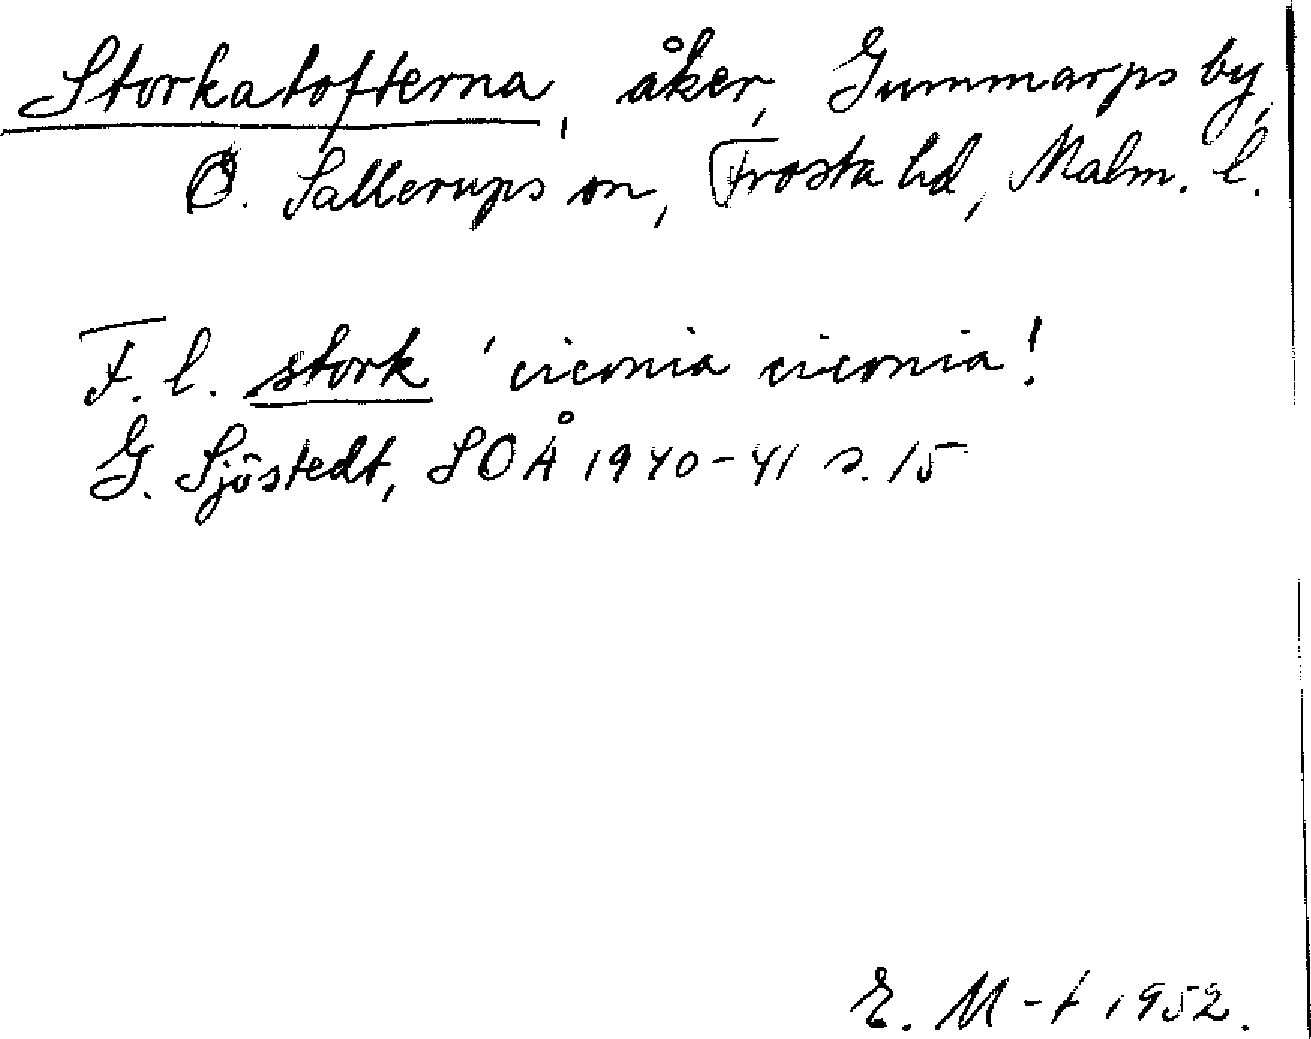 Storkatofterna, åker, Gummarps by,
Ö. Sallerups sn, Frosta hd, Malm. l.
F. l. stork 'ciconia ciconia'.
G. Sjöstedt, SOÅ 1940-41 s. 15
E. M-t 1952.